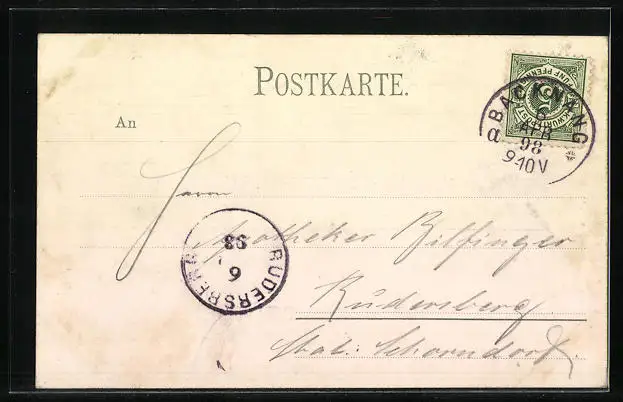 POSTKARTE.
FÜNF PFENN
5
K.WÜRTTEMB.
BACKNANG
6
APR
98
9-10V
a
An
Herrn
Apotheker Bilfinger
Rudersberg
Stat: Schorndorf
RUDERSBERG
6
98